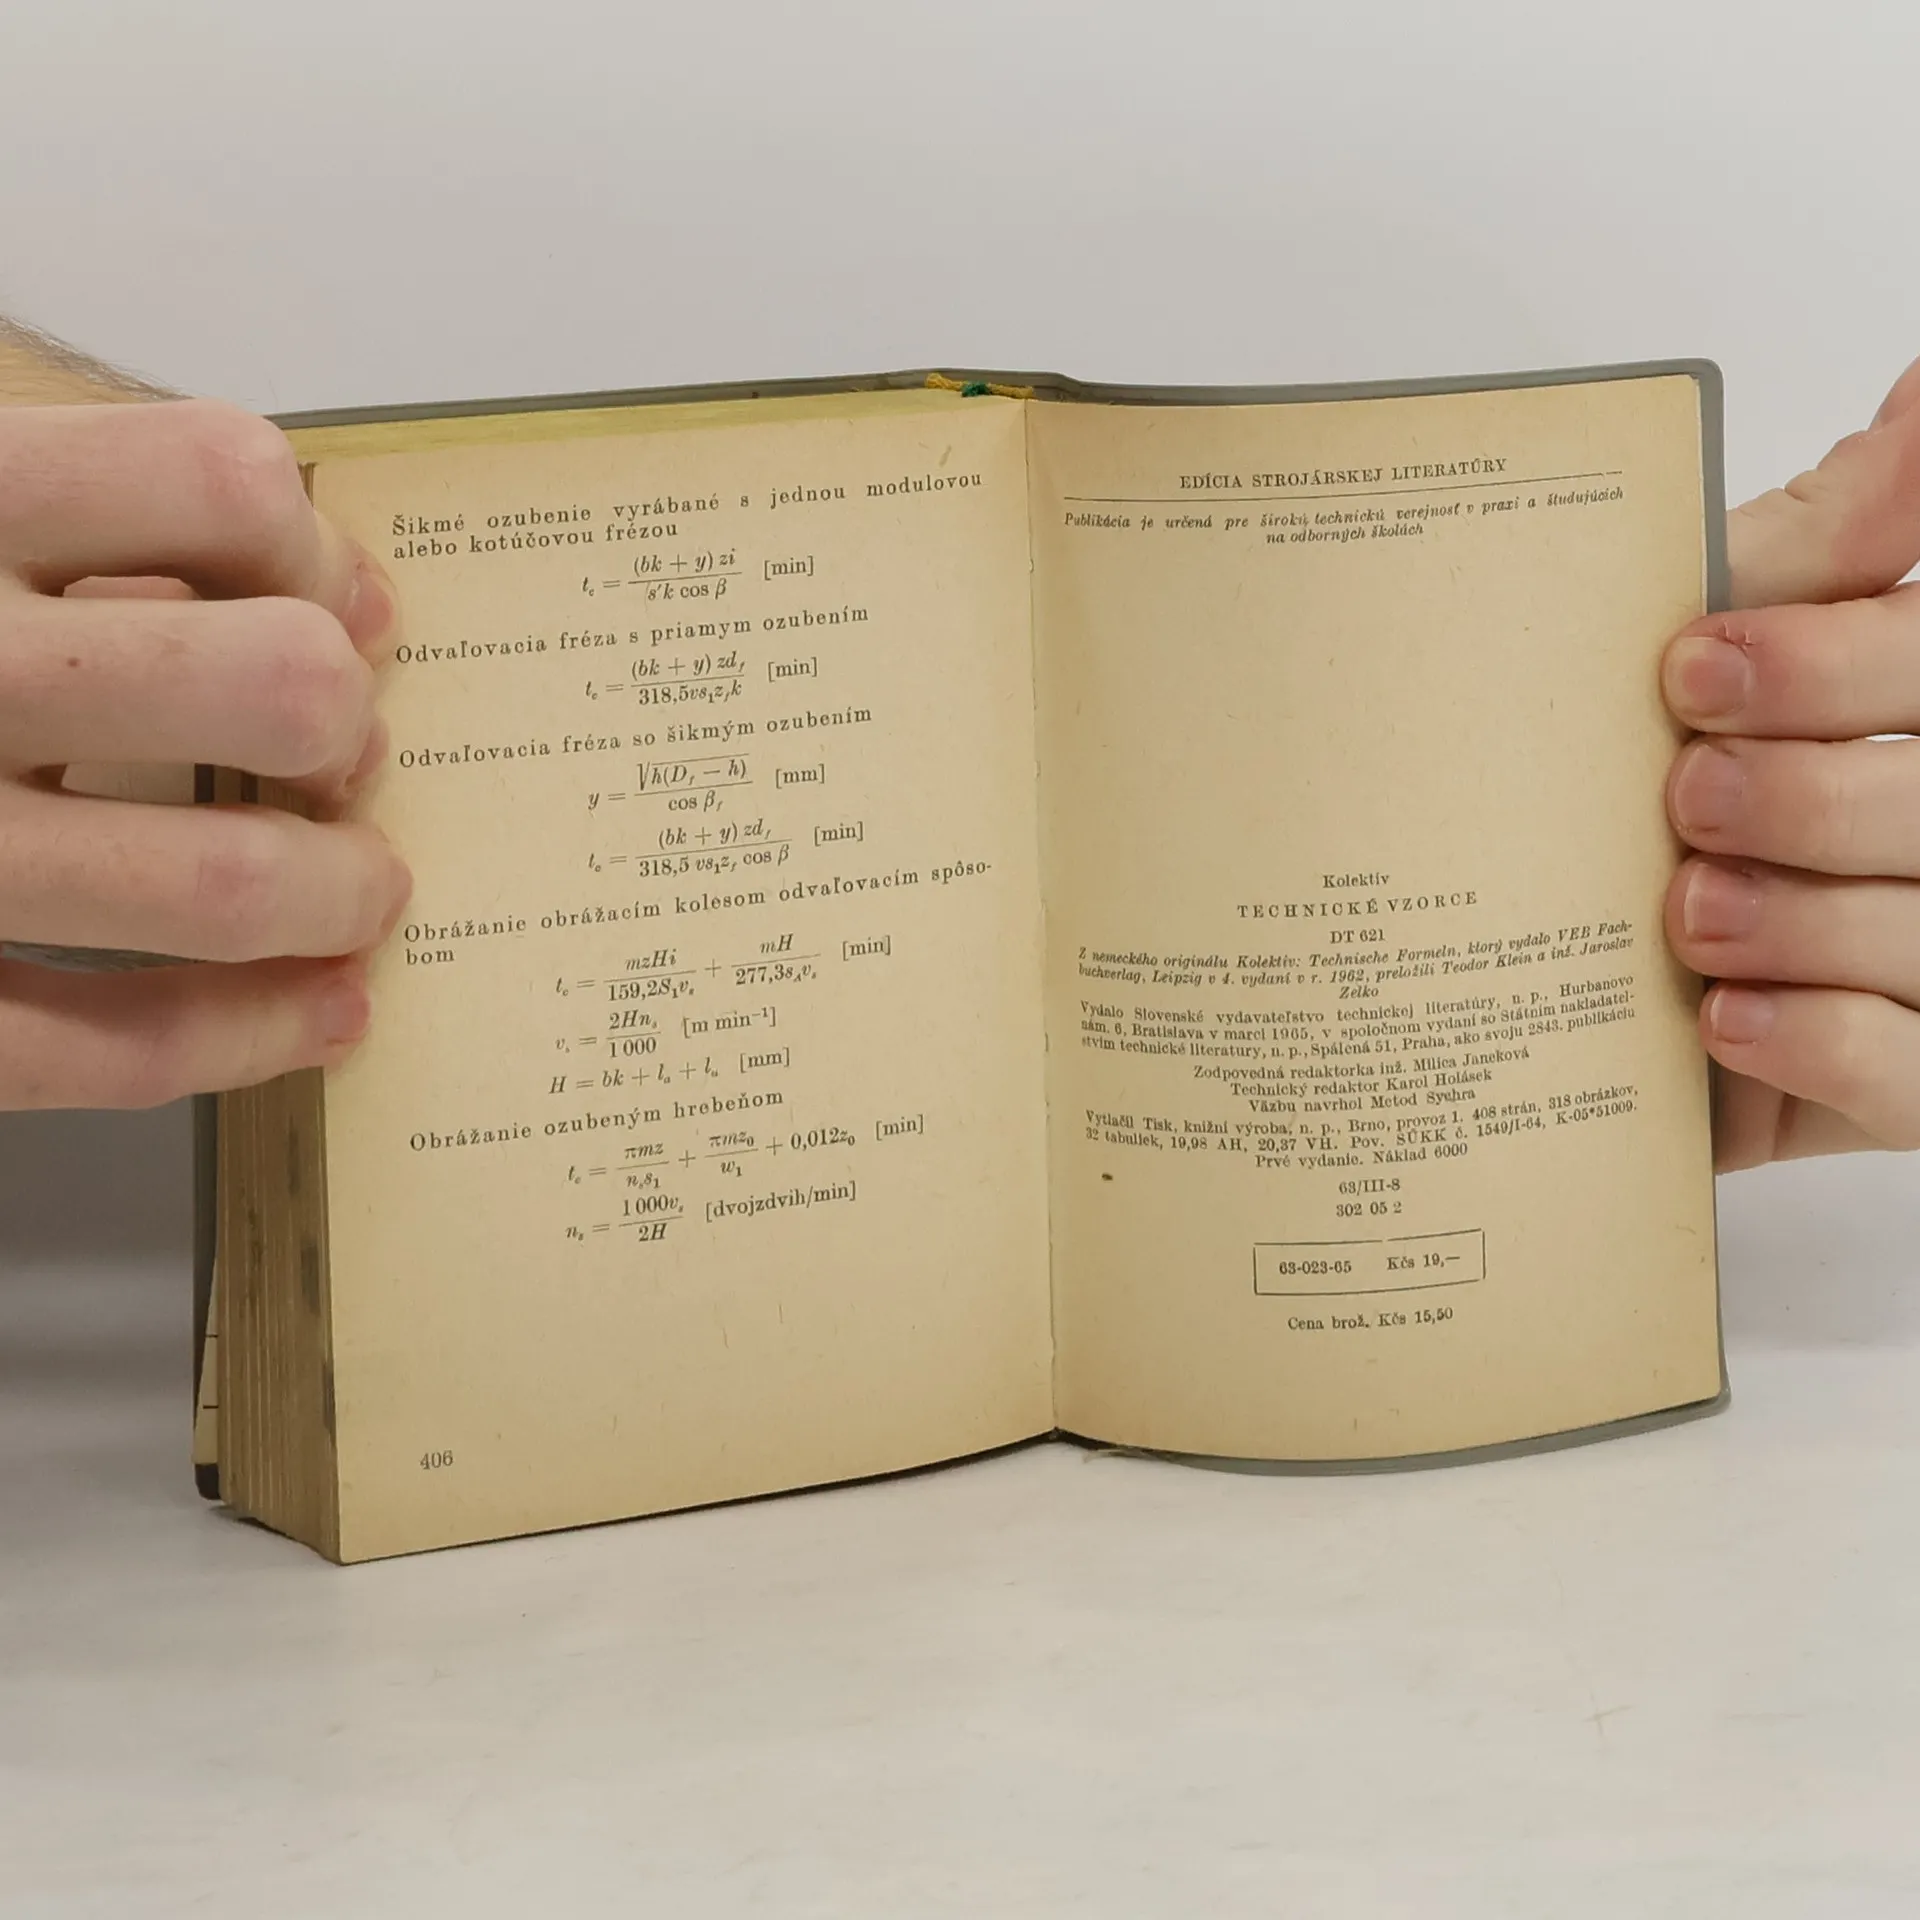 Šikmé ozubenie vyrábané s jednou modulovou
alebo kotúčovou frézou
t_c = (bk + y) zi / s'k cos β [min]
Odvaľovacia fréza s priamym ozubením
t_c = (bk + y) zd_f / 318,5vs₁z_fk [min]
Odvaľovacia fréza so šikmým ozubením
y = √h(D_f — h) / cos β_f [mm]
t_c = (bk + y) zd_f / 318,5 vs₁z_f cos β [min]
Obrážanie obrážacím kolesom odvaľovacím spôso-
bom
t_c = mzHi / 159,2S₁v_s + mH / 277,3s_Av_s [min]
v_s = 2Hn_s / 1 000 [m min⁻¹]
H = bk + l_a + l_u [mm]
Obrážanie ozubeným hrebeňom
t_c = πmz / n_ss₁ + πmz₀ / w₁ + 0,012z₀ [min]
n_s = 1 000v_s / 2H [dvojzdvih/min]
406
EDÍCIA STROJÁRSKEJ LITERATÚRY
Publikácia je určená pre širokú technickú verejnosť v praxi a študujúcich
na odborných školách
Kolektív
TECHNICKÉ VZORCE
DT 621
Z nemeckého originálu Kolektiv: Technische Formeln, ktorý vydalo VEB Fach-
buchverlag, Leipzig v 4. vydaní v r. 1962, preložili Teodor Klein a inž. Jaroslav
Zelko
Vydalo Slovenské vydavateľstvo technickej literatúry, n. p., Hurbanovo
nám. 6, Bratislava v marci 1965, v spoločnom vydaní so Státním nakladatel-
stvím technické literatury, n. p., Spálená 51, Praha, ako svoju 2843. publikáciu
Zodpovedná redaktorka inž. Milica Janeková
Technický redaktor Karol Holásek
Väzbu navrhol Metod Sychra
Vytlačil Tisk, knižní výroba, n. p., Brno, provoz 1. 408 strán, 318 obrázkov,
32 tabuliek, 19,98 AH, 20,37 VH. Pov. SÚKK č. 1549/I-64, K-05*51009.
Prvé vydanie. Náklad 6000
63/III-8
302 05 2
63-023-65 Kčs 19,—
Cena brož. Kčs 15,50